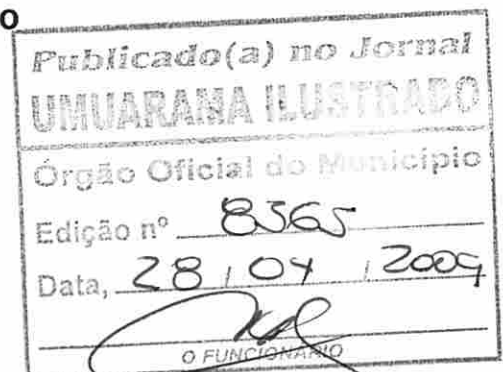 o
Publicado(a) no Jornal
UMUARAMA ILUSTRADO
Órgão Oficial do Município
Edição nº 8365
Data, 28 / 04 / 2009
O FUNCIONÁRIO